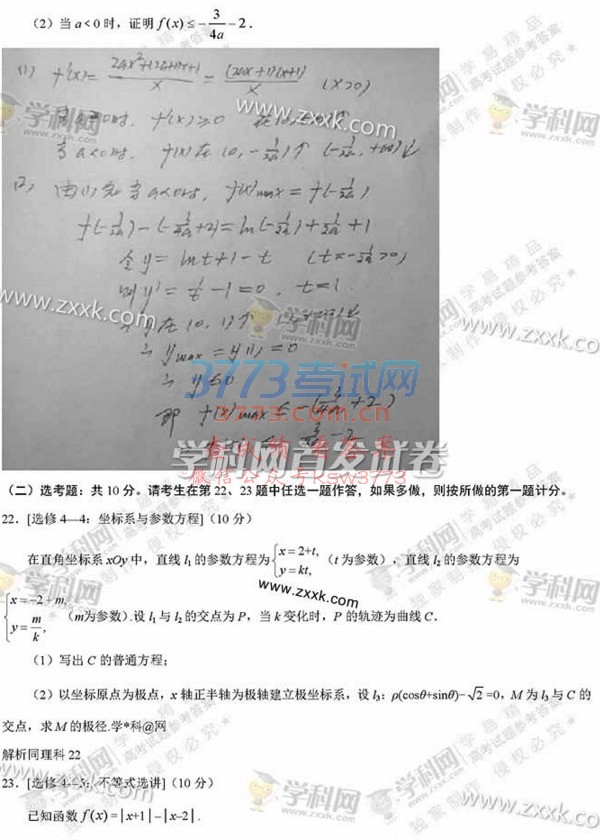 （2）当 a＜0 时，证明 f(x) ≤ -3/(4a) - 2．
(1) f'(x) = (2ax²+(2a+1)x+1)/x = (2ax+1)(x+1)/x (x>0)
当a<0时, f(x)在(0, -1/2a)↑ (-1/2a, +∞)↓
(2) 由(1)知当a<0时, f(x)max = f(-1/2a)
f(-1/2a) - (-3/4a + 2) = ln(-1/2a) + 1/2a + 1
令y = lnt+1-t (t=-1/2a>0)
则y' = 1/t - 1 = 0, t=1.
∴ ymax = y(1) = 0
∴ y≤0
即 f(x)max ≤ -(3/4a + 2)
3773考试网
学科网首发试卷
微信公众号ksw3773
（二）选考题：共 10 分。请考生在第 22、23 题中任选一题作答，如果多做，则按所做的第一题计分。
22．[选修 4—4：坐标系与参数方程]（10 分）
在直角坐标系 xOy 中，直线 l₁ 的参数方程为 {x=2+t, y=kt, （t 为参数），直线 l₂ 的参数方程为
{x=-2+m, y=m/k, （m为参数）.设 l₁ 与 l₂ 的交点为 P，当 k 变化时，P 的轨迹为曲线 C．
（1）写出 C 的普通方程；
（2）以坐标原点为极点，x 轴正半轴为极轴建立极坐标系，设 l₃：ρ(cosθ+sinθ)-√2=0，M 为 l₃ 与 C 的
交点，求 M 的极径.学*科@网
解析同理科 22
23．[选修 4—5：不等式选讲]（10 分）
已知函数 f(x)=|x+1|-|x-2|．
www.zxxk.com
学科网
学易精品
高考试题参考答案
独家制作 侵权必究